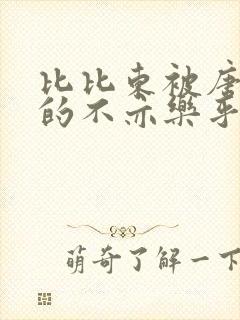 比比东被唐
的不亦乐乎
萌奇了解一下